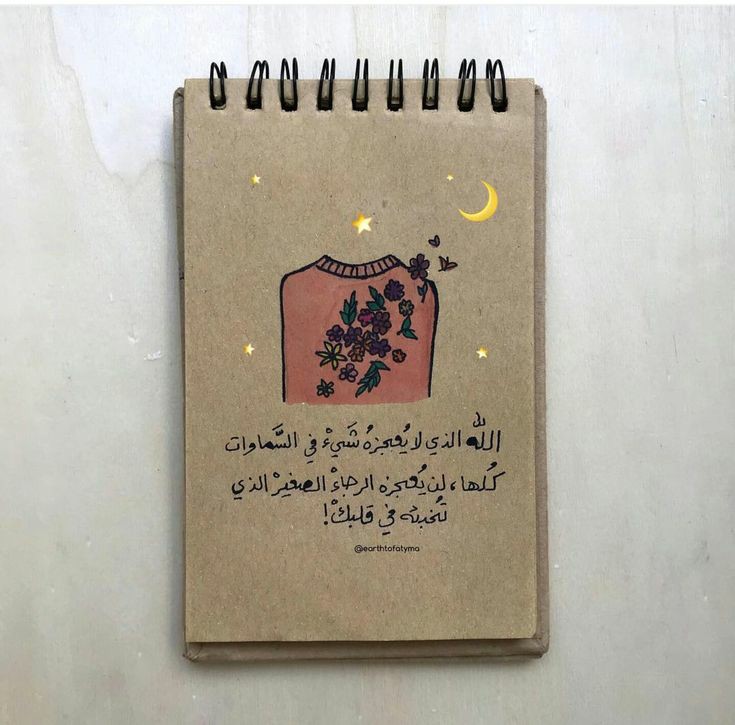 اللّٰه الذي لا يُعجزهُ شَيءْ في السَّماوات
كُلها، لن يُعجزه الرجاءْ الصغيرْ الذي
تُخبئه في قلبكْ!
@earthtofatyma